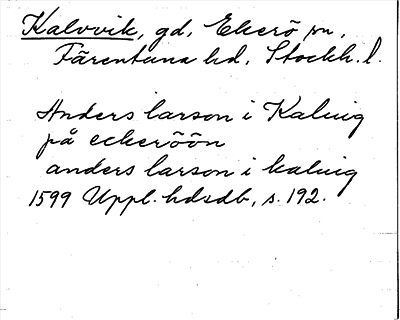 Kalvvik, gd, Ekerö sn,
Färentuna hd, Stockh. l.
Anders larson i Kaluig
på eckeröön
anders larson i kaluig
1599 Uppl. hdsdb, s. 192.